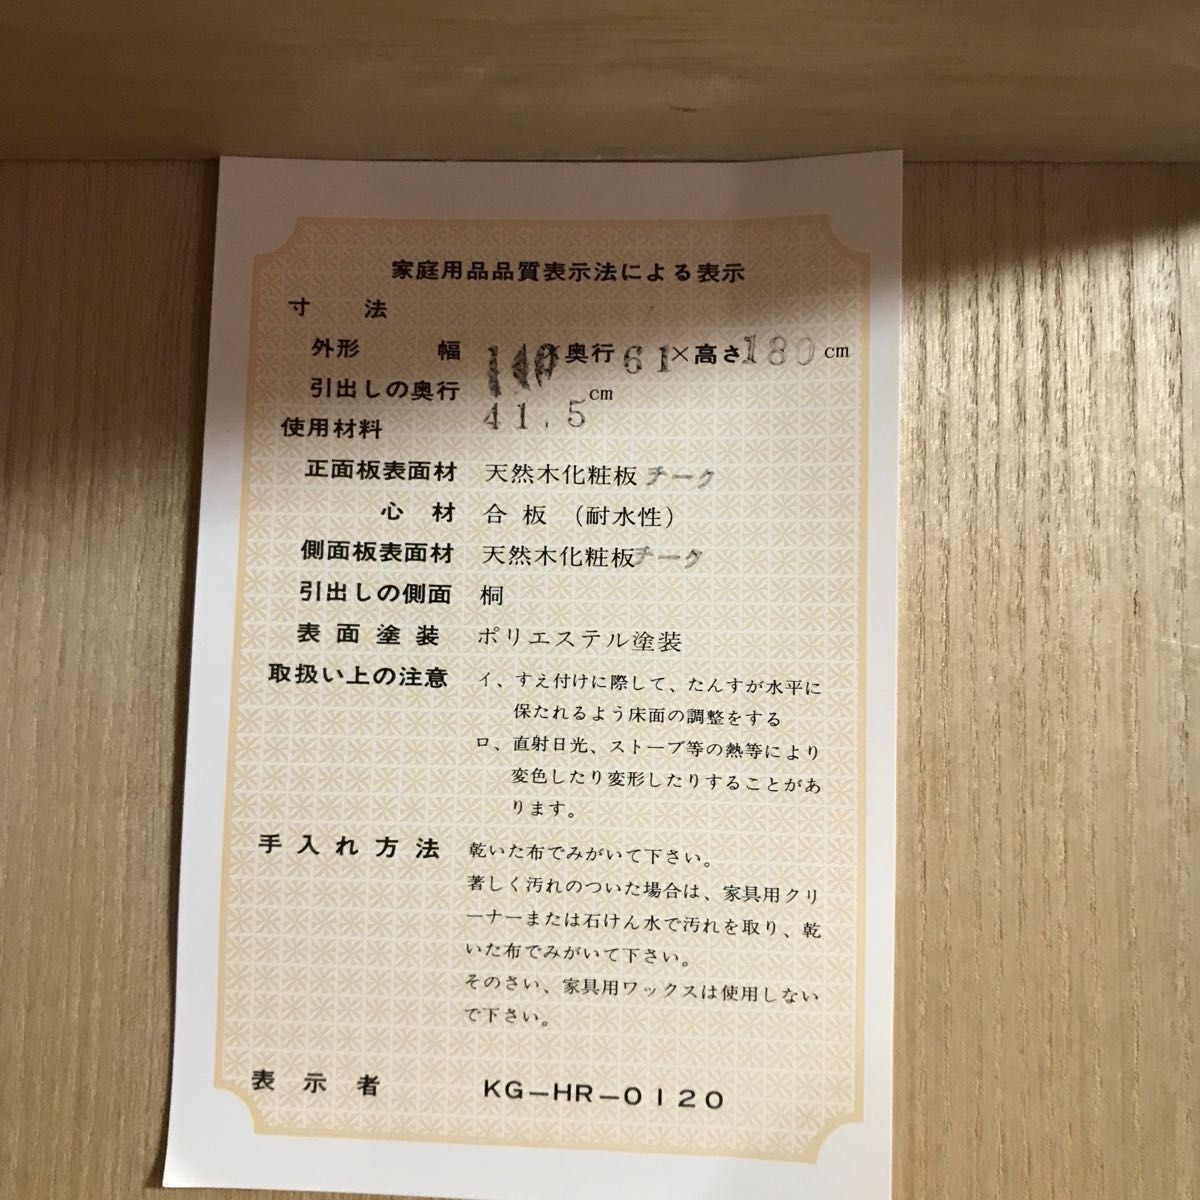 家庭用品品質表示法による表示
寸 法
外形 幅 140×奥行61×高さ180cm
引出しの奥行 41.5cm
使用材料
正面板表面材 天然木化粧板チーク
心 材 合板 (耐水性)
側面板表面材 天然木化粧板チーク
引出しの側面 桐
表面塗装 ポリエステル塗装
取扱い上の注意 イ、すえ付けに際して、たんすが水平に
保たれるよう床面の調整をする
ロ、直射日光、ストーブ等の熱等により
変色したり変形したりすることがあ
ります。
手入れ方法 乾いた布でみがいて下さい。
著しく汚れのついた場合は、家具用クリ
ーナーまたは石けん水で汚れを取り、乾
いた布でみがいて下さい。
そのさい、家具用ワックスは使用しない
で下さい。
表示者 KG-HR-0120